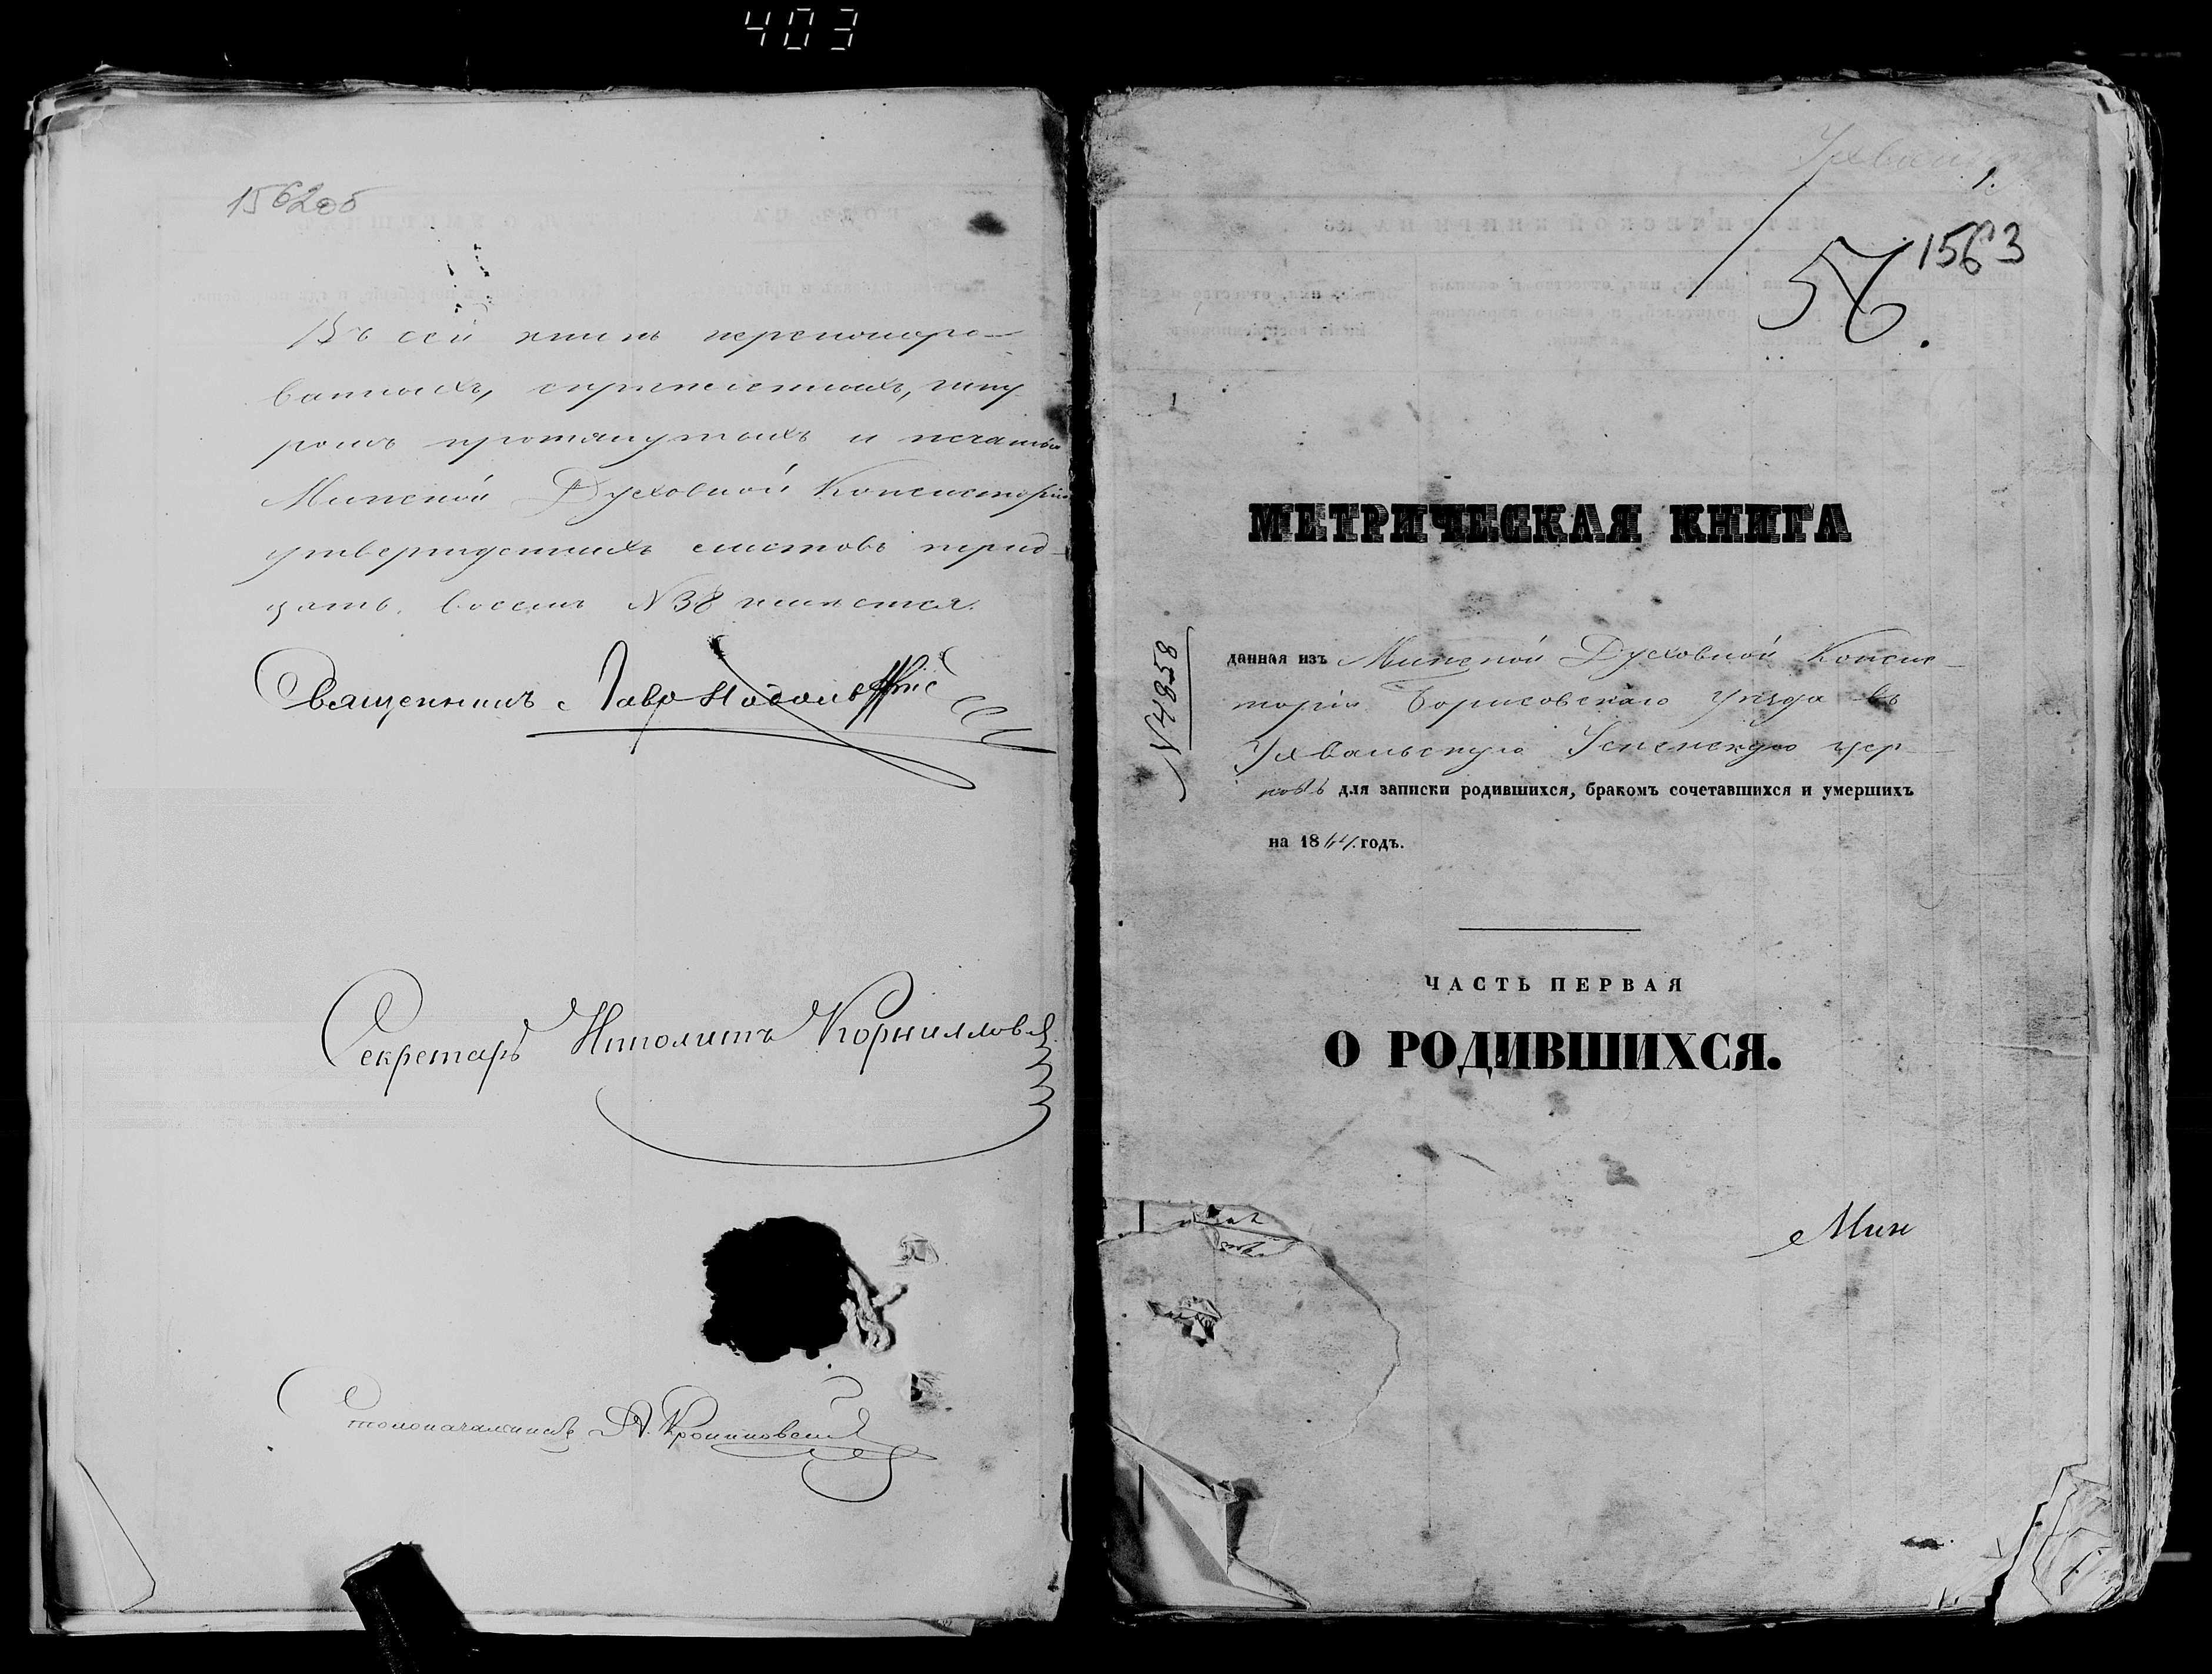 403
1562об
Въ сей книгѣ перенумеро-
ванныхъ, скрѣпленныхъ, шну
ромъ протянутыхъ и печатью
Минской Духовной Консисторіи
утвержденныхъ листовъ трид-
цать восемь № 38 имѣется.
Священникъ
Секретарь Иполитъ Корниловъ
Столоначальникъ А.
1.
56.
1563
МЕТРИЧЕСКАЯ КНИГА
№ 4858
данная изъ Минской Духовной Консис-
торіи Борисовскаго уѣзда въ
Ухвальскую Успенскую цер-
ковь для записки родившихся, бракомъ сочетавшихся и умершихъ
на 1864 годъ.
ЧАСТЬ ПЕРВАЯ
О РОДИВШИХСЯ.
Мин